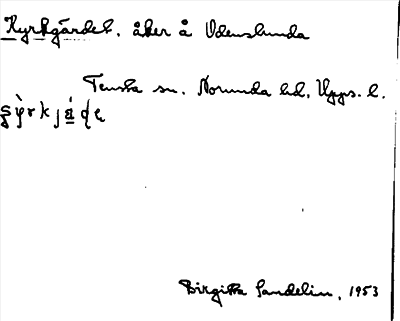 Kyrkgärdet, åker å Udenslunda
Tensta sn. Norunda hd. Upps. l.
Birgitta Sandelin, 1953